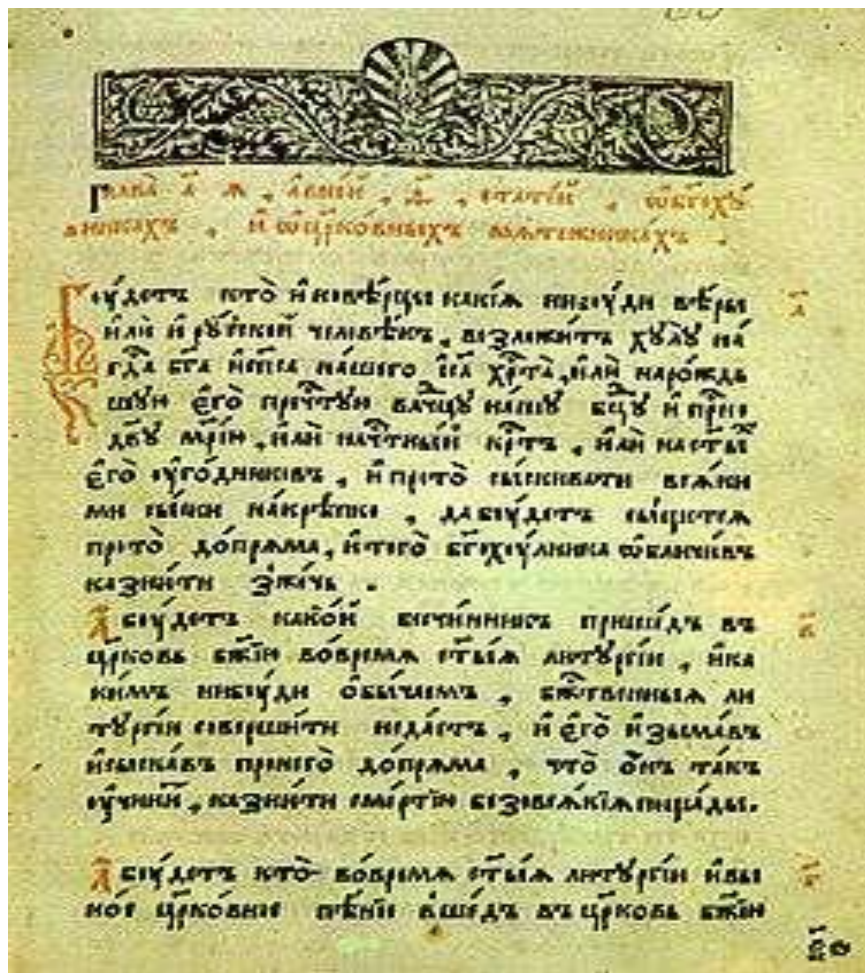 Глава а҃ я, а вне́й, ѳ҃, стате́й, ѡ҆ бг҃оху́
лникахъ, и҆ ѡ҆ цр҃ко́вныхъ мяте́жникахъ.
Бꙋ́детъ кто̀ и҆новѣ́рцы какі́я нибꙋди вѣ́ры
и҆лѝ и҆ рꙋ́ской человѣ́къ, возложи́тъ хꙋлꙋ̀ на
гд҃а бг҃а и҆ сп҃са на́шего і҆с҃а хр҃та̀, и҆лѝ нарожд
шꙋю є҆го̀ пречт҃ꙋю влⷣчцꙋ на́шꙋ бц҃ꙋ и҆ прⷭ҇но
дв҃ꙋ мр҃і́ю, и҆лѝ начт҃ны́й крⷭ҇тъ, и҆лѝ наст҃ы́хъ
є҆го̀ ᲂу҆го́дниковъ, и҆ прото̀ сы́скивати вся́ки
ми сы́ски накрѣ́пко, да бꙋ́детъ сы́щется
прото̀ допряма, и҆ того̀ бг҃охꙋ́лника ѡ҆бличи́въ
казни́ти зже́чь.
А҆ бꙋ́детъ како́й безчи́нникъ прише́дъ въ
цр҃ковь бж҃ію вовремя ст҃ы́я литꙋргі́и, и҆ ка
ки́мъ нибꙋди ѻ҆бы́чаемъ, бжⷭ҇твенныя ли
тꙋргі́и соверши́ти неда́стъ, и҆ є҆го̀ и҆зыма́въ
и҆ сыска́въ пронего̀ допряма, что̀ ѻ҆́нъ та́къ
ᲂу҆чини́тъ, казни́ти сме́ртію безовся́кія поща́ды.
А҆ бꙋ́детъ кто̀ вовремя ст҃ы́я литꙋргі́и и҆ вы
но́е цр҃ко́вное пѣ́ніе вше́дъ въ цр҃ковь бж҃ію
а҃
в҃
г҃